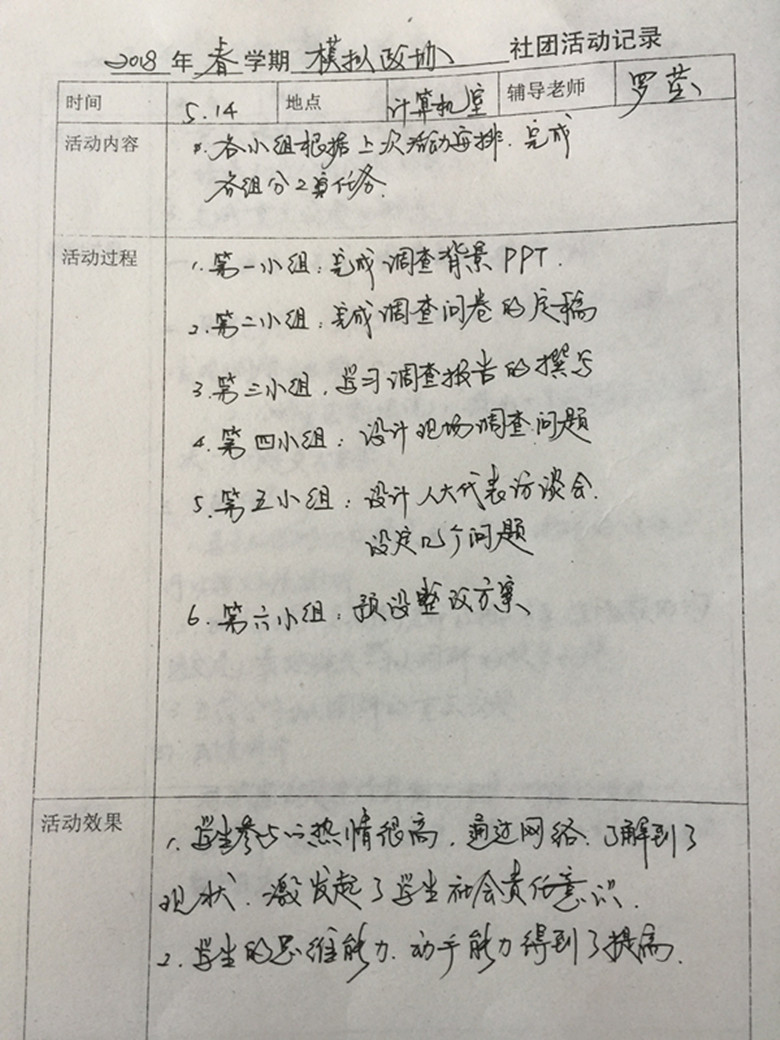 2018年春学期模拟政协 社团活动记录
时间 5.14 地点 计算机室 辅导老师 罗莹
活动内容 各小组根据上次活动安排.完成
各组分工与任务.
活动过程 1.第一小组:完成调查背景PPT.
2.第二小组:完成调查问卷的定稿
3.第三小组,学习调查报告的撰写
4.第四小组:设计现场调查问题
5.第五小组:设计人大代表访谈会.
设定几个问题
6.第六小组:预设整改方案
活动效果 1.学生参与的热情很高,通过网络.了解到了
现状.激发起了学生社会责任意识.
2.学生的思维能力.动手能力得到了提高.